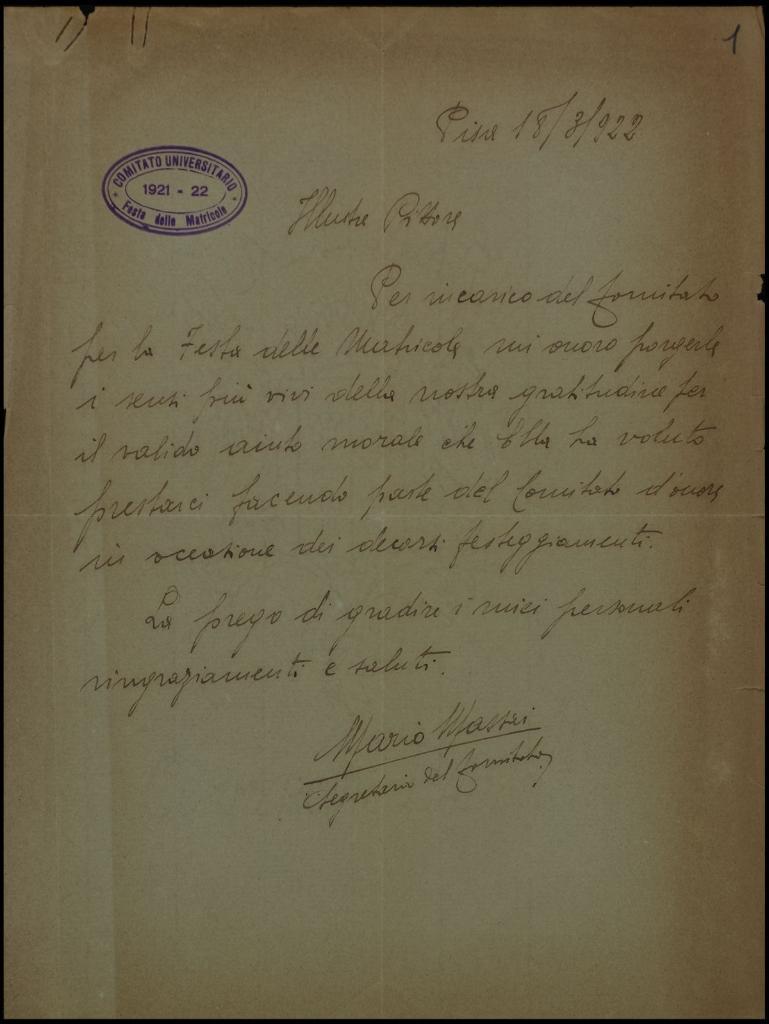 1
Pisa 18/3/922
COMITATO UNIVERSITARIO
1921 - 22
Festa delle Matricole
Illustre Pittore
Per incarico del Comitato
per la Festa delle Matricole mi onoro porgerle
i sensi più vivi della nostra gratitudine per
il valido aiuto morale che Ella ha voluto
prestarci facendo parte del Comitato d'onore
in occasione dei decorsi festeggiamenti.
La prego di gradire i miei personali
ringraziamenti e saluti.
Mario
Segretario del Comitato